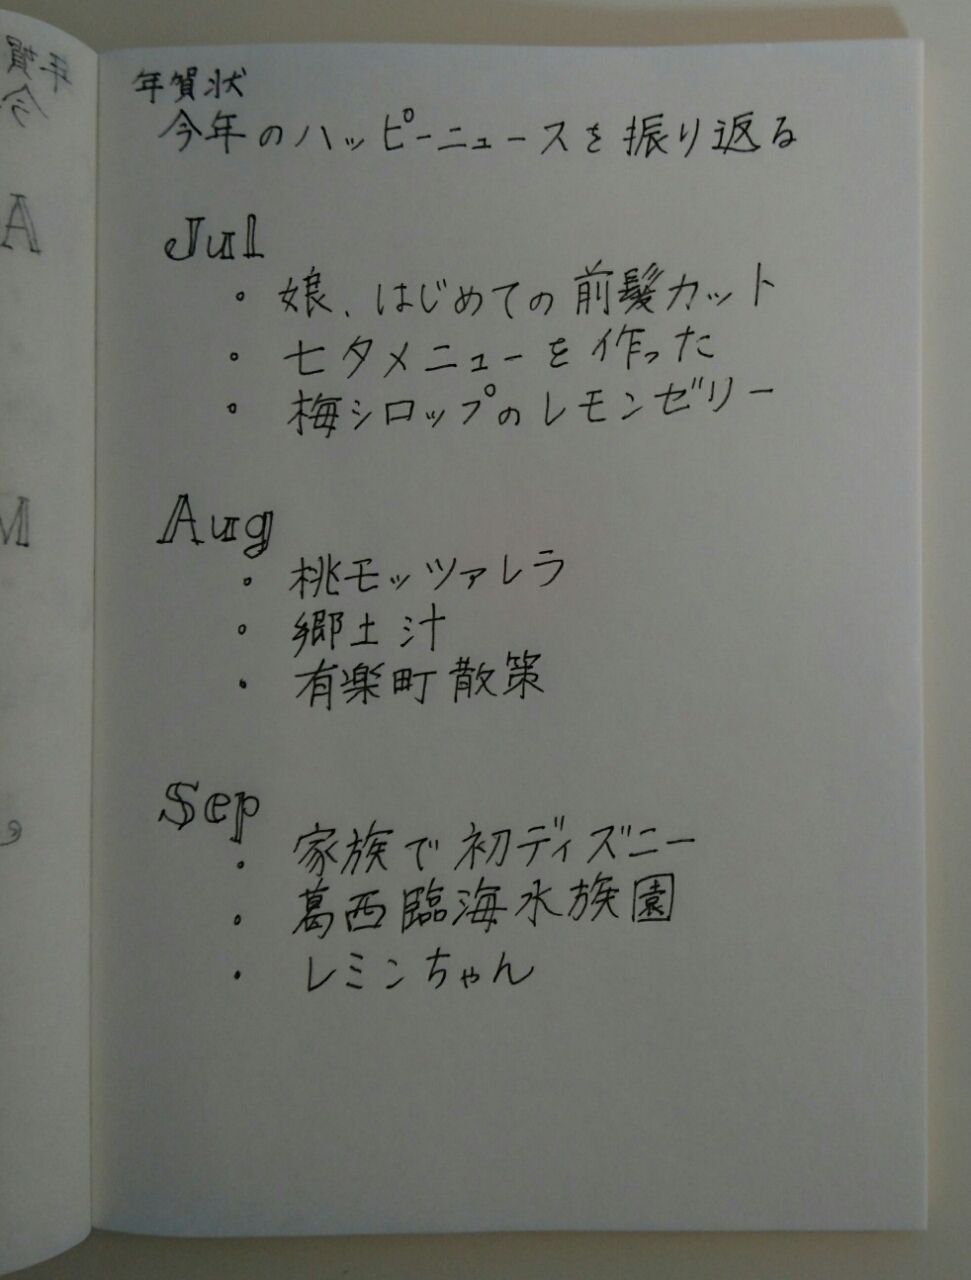 年賀状
今年のハッピーニュースを振り返る
Jul
・娘、はじめての前髪カット
・七夕メニューを作った
・梅シロップのレモンゼリー
Aug
・桃モッツァレラ
・郷土汁
・有楽町散策
Sep
・家族で初ディズニー
・葛西臨海水族園
・レミンちゃん